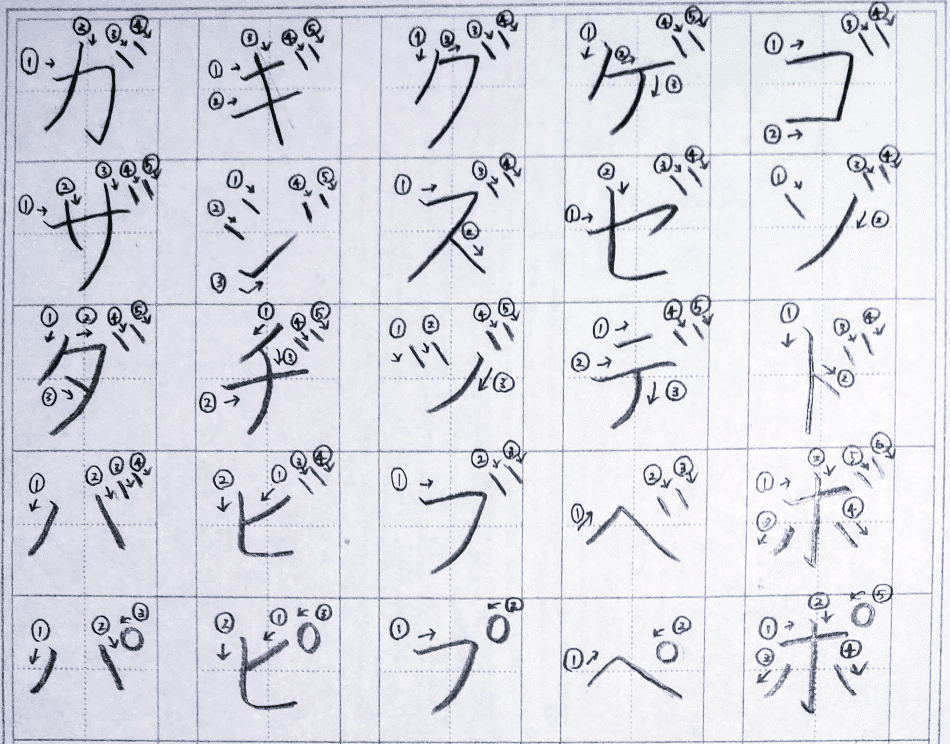 ガ ギ グ ゲ ゴ
ザ ジ ズ ゼ ゾ
ダ ヂ ヅ デ ド
バ ビ ブ ベ ボ
パ ピ プ ペ ポ